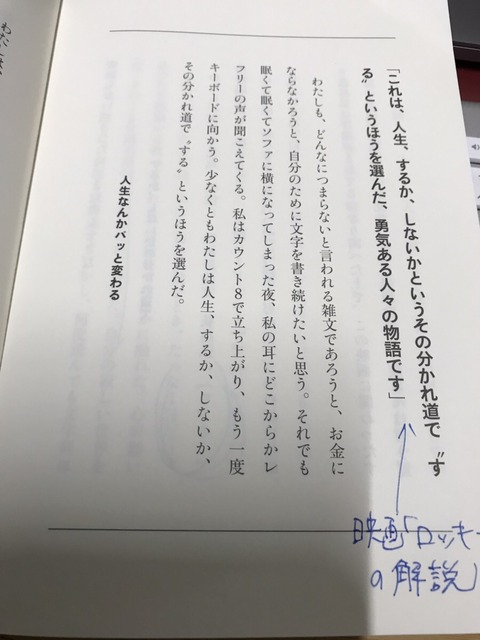 「これは、人生、するか、しないかというその分かれ道で〝す
る〟というほうを選んだ、勇気ある人々の物語です」
わたしも、どんなにつまらないと言われる雑文であろうと、お金に
ならなかろうと、自分のために文字を書き続けたいと思う。それでも
眠くて眠くてソファに横になってしまった夜、私の耳にどこからかレ
フリーの声が聞こえてくる。私はカウント8で立ち上がり、もう一度
キーボードに向かう。少なくともわたしは人生、するか、しないか、
その分かれ道で〝する〟というほうを選んだ。
人生なんかパッと変わる
映画「ロッキー
の解説」